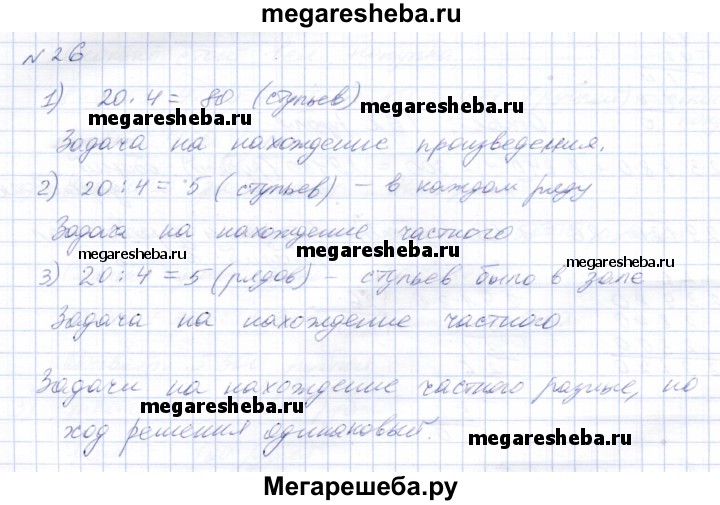 megaresheba.ru
№26
1) 20·4= 80 (стульев)
megaresheba.ru megaresheba.ru
Задача на нахождение произведения.
2) 20:4= 5 (стульев) – в каждом ряду
Задача на нахождение частного
megaresheba.ru megaresheba.ru megaresheba.ru
3) 20:4=5 (рядов) – стульев было в зале
Задача на нахождение частного
Задачи на нахождение частного разные, но
megaresheba.ru
ход решения одинаковый.
megaresheba.ru
Мегарешеба.ру